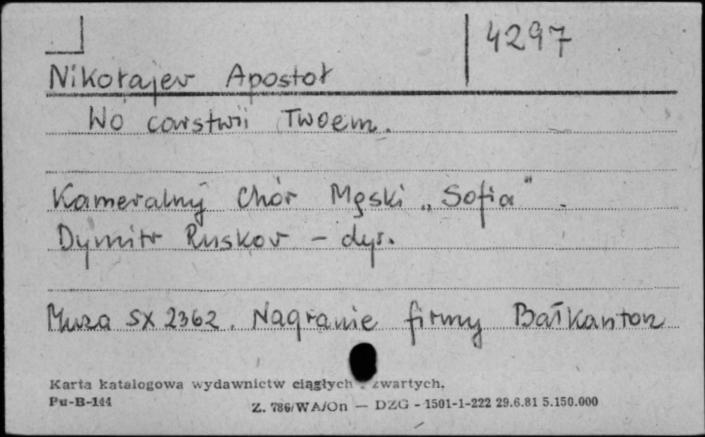 4297
Nikołajev Apostoł
Wo carstwii Twoem.
Kameralny Chór Męski „Sofia".
Dymitr Ruskov – dyr.
Muza SX 2362. Nagranie firmy Bałkanton
Karta katalogowa wydawnictw ciągłych i zwartych.
Pu-B-144
Z. 786/WA/On — DZG - 1501-1-222 29.6.81 5.150.000